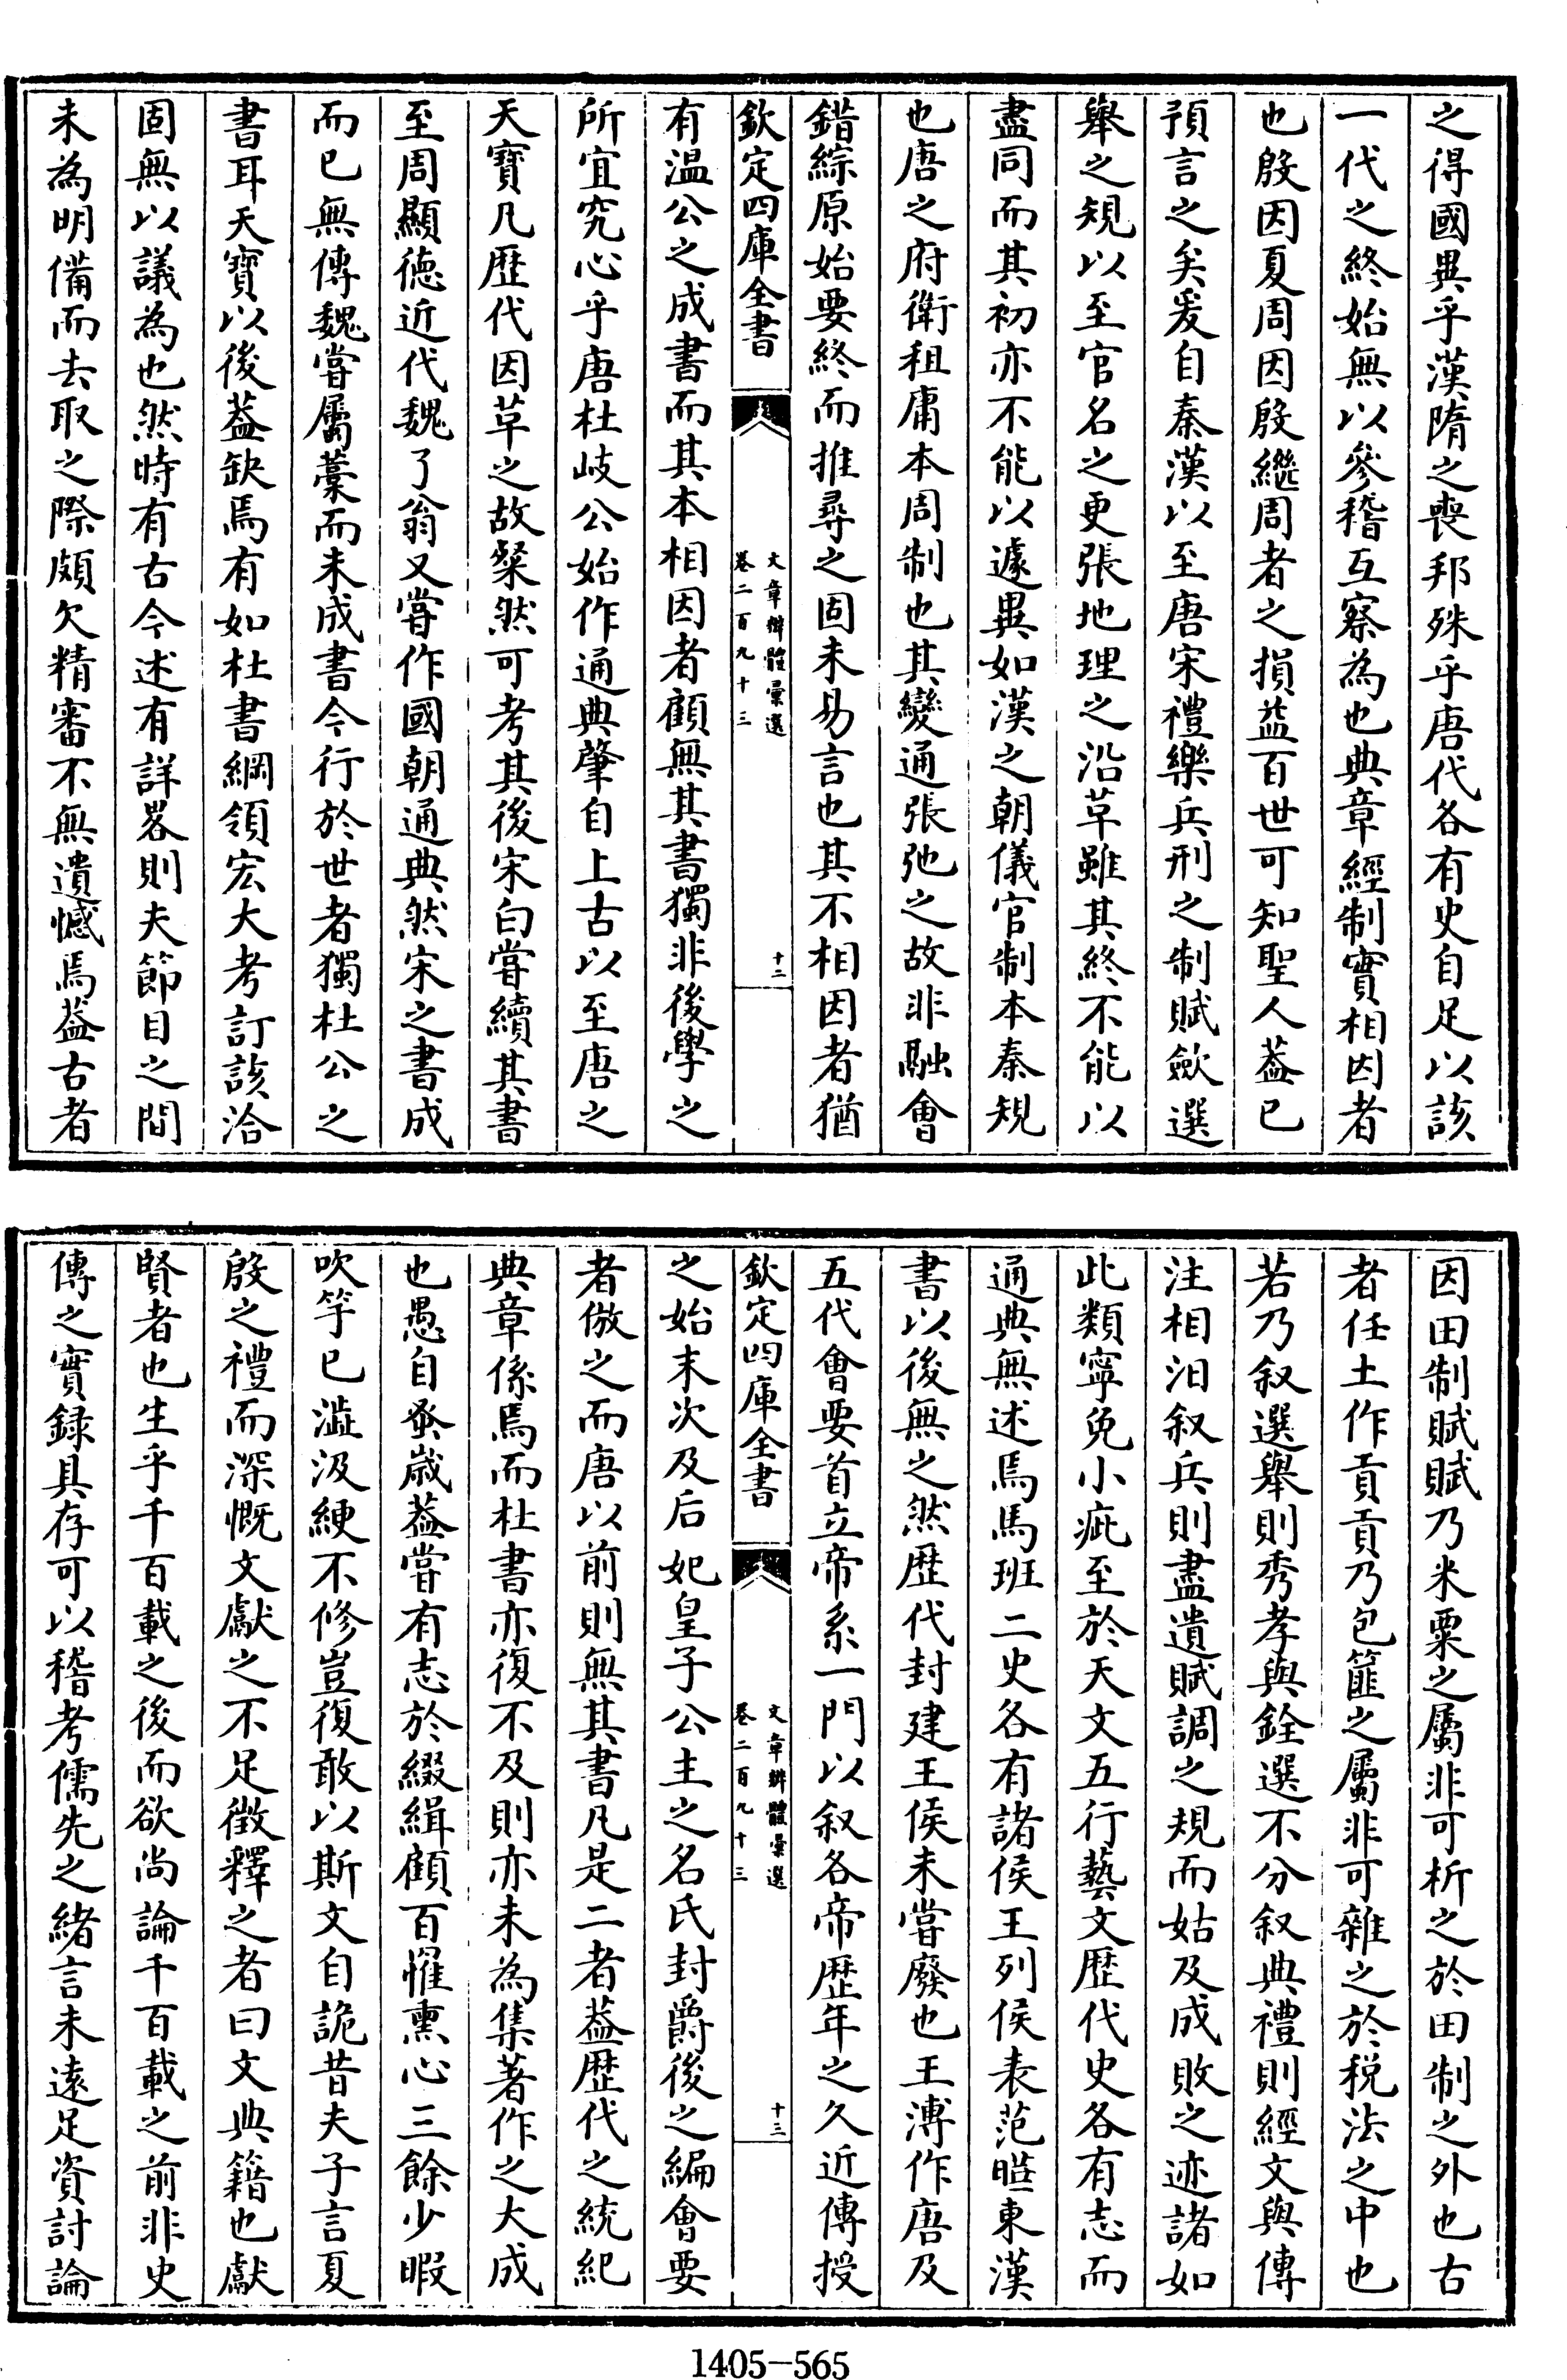 之得國異乎漢隋之喪邦殊乎唐代各有史自足以該
一代之終始無以參稽互察為也典章經制實相因者
也殷因夏周因殷繼周者之損益百世可知聖人葢已
預言之矣爰自秦漢以至唐宋禮樂兵刑之制賦歛選
舉之規以至官名之更張地理之沿革雖其終不能以
盡同而其初亦不能以遽異如漢之朝儀官制本秦規
也唐之府衛租庸本周制也其變通張弛之故非融會
錯綜原始要終而推尋之固未易言也其不相因者猶
欽定四庫全書
文章辨體彙選
卷二百九十三
十二
有温公之成書而其本相因者顧無其書獨非後學之
所宜究心乎唐杜岐公始作通典肇自上古以至唐之
天寶凡歴代因革之故粲然可考其後宋白嘗續其書
至周顯德近代魏了翁又嘗作國朝通典然宋之書成
而已無傳魏嘗屬藁而未成書今行於世者獨杜公之
書耳天寶以後葢缺焉有如杜書綱領宏大考訂該洽
固無以議為也然時有古今述有詳畧則夫節目之間
未為明備而去取之際頗欠精審不無遺憾焉葢古者
因田制賦賦乃米粟之屬非可析之於田制之外也古
者任土作貢貢乃包篚之屬非可雜之於税法之中也
若乃叙選舉則秀孝與銓選不分叙典禮則經文與傳
注相汨叙兵則盡遺賦調之規而姑及成敗之迹諸如
此類寧免小疵至於天文五行藝文歴代史各有志而
通典無述焉馬班二史各有諸侯王列侯表范曄東漢
書以後無之然歴代封建王侯未嘗廢也王溥作唐及
五代會要首立帝系一門以叙各帝歴年之久近傳授
欽定四庫全書
文章辨體彙選
卷二百九十三
十三
之始末次及后妃皇子公主之名氏封爵後之編會要
者倣之而唐以前則無其書凡是二者葢歴代之統紀
典章係焉而杜書亦復不及則亦未為集著作之大成
也愚自蚤歳葢嘗有志於綴緝顧百罹熏心三餘少暇
吹竽已澁汲綆不修豈復敢以斯文自詭昔夫子言夏
殷之禮而深慨文獻之不足徴釋之者曰文典籍也獻
賢者也生乎千百載之後而欲尚論千百載之前非史
傳之實録具存可以稽考儒先之緒言未逺足資討論
1405-565